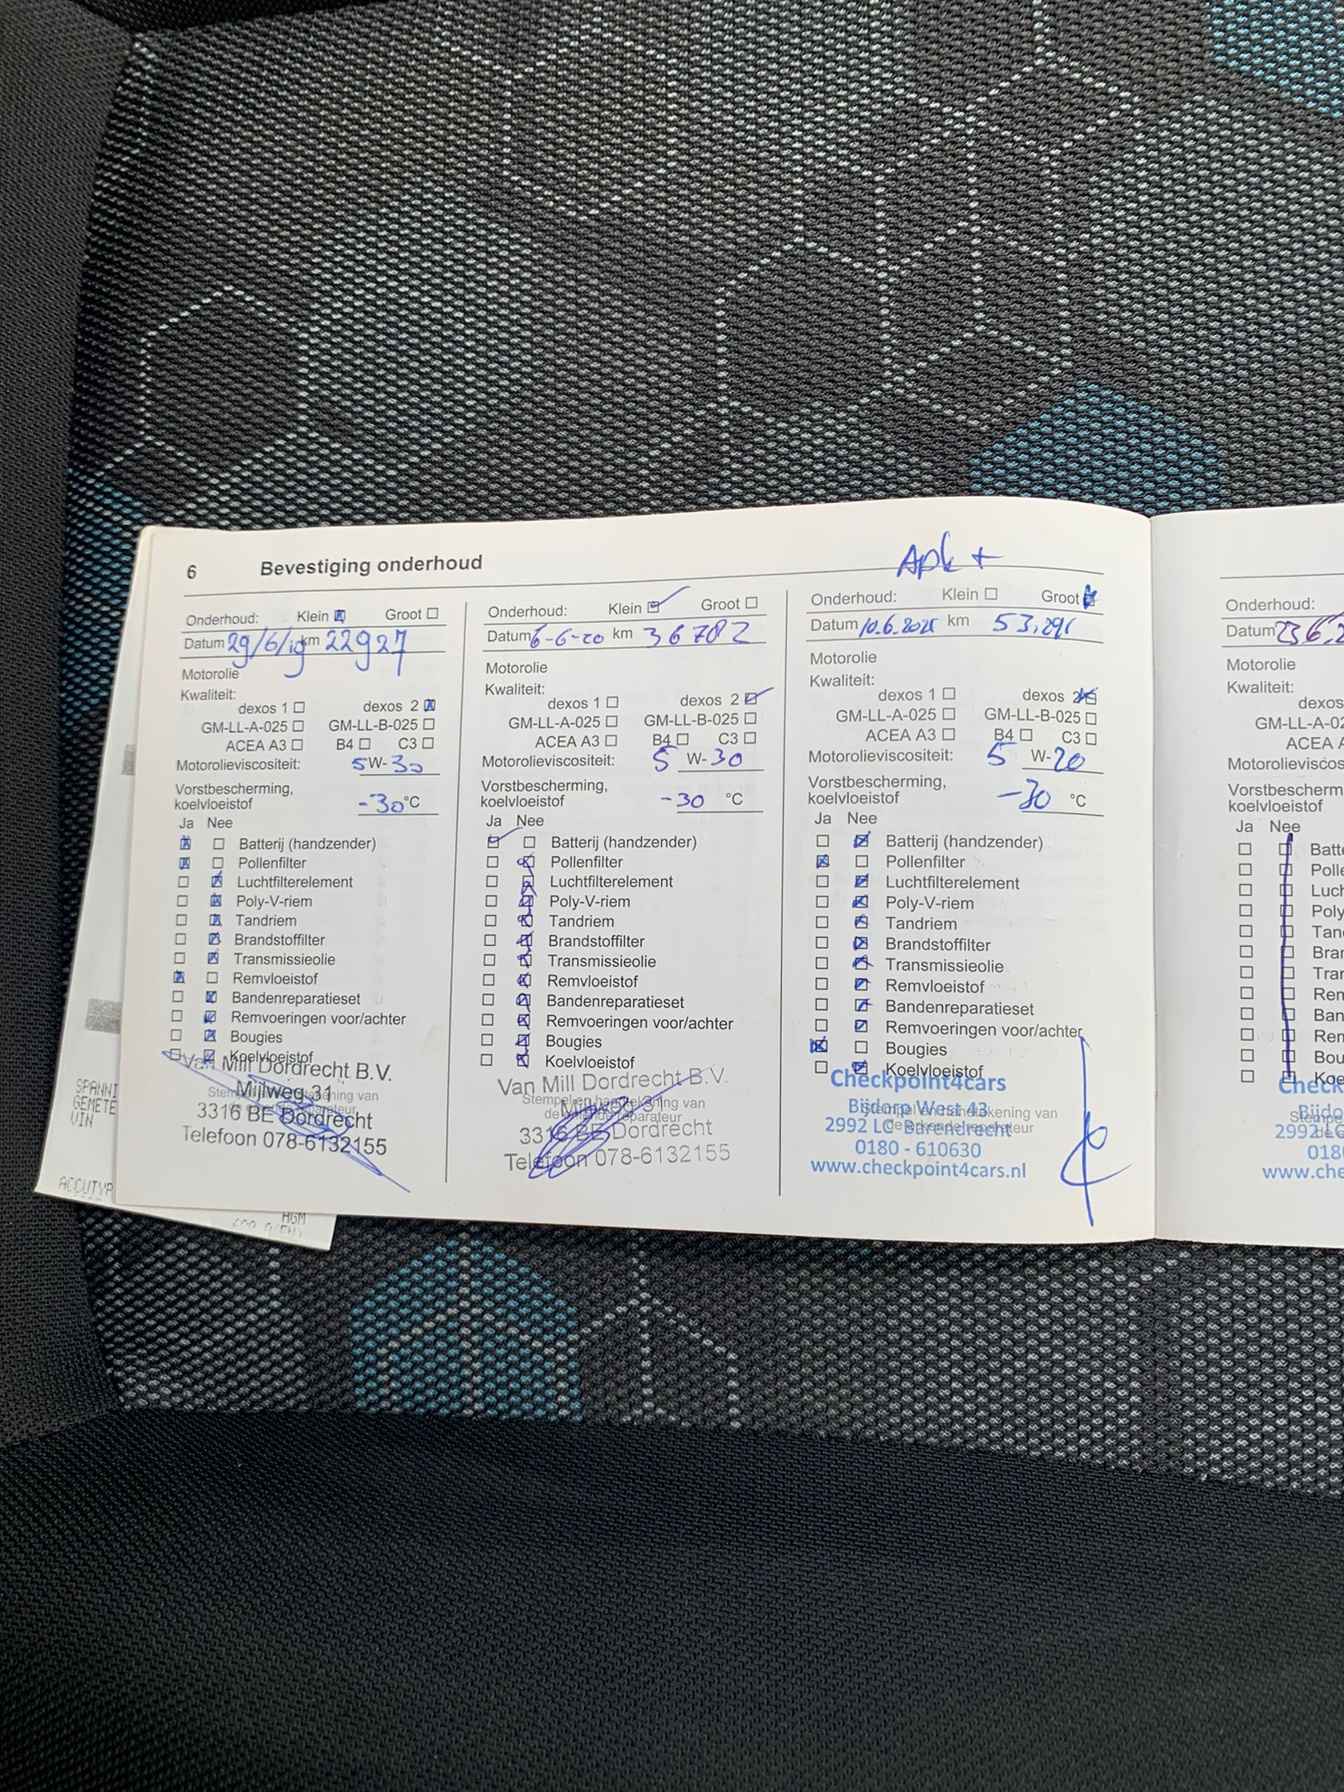 6 Bevestiging onderhoud
Apk +
Onderhoud: Klein Groot
Datum 29/6/19 km 22927
Motorolie
Kwaliteit:
dexos 1 dexos 2
GM-LL-A-025 GM-LL-B-025
ACEA A3 B4 C3
Motorolieviscositeit: 5 W-30
Vorstbescherming,
koelvloeistof -30 °C
Ja Nee
Batterij (handzender)
Pollenfilter
Luchtfilterelement
Poly-V-riem
Tandriem
Brandstoffilter
Transmissieolie
Remvloeistof
Bandenreparatieset
Remvoeringen voor/achter
Bougies
Koelvloeistof
Van Mill Dordrecht B.V.
Mijlweg 31
3316 BE Dordrecht
Telefoon 078-6132155
Onderhoud: Klein Groot
Datum 6-6-20 km 36782
Motorolie
Kwaliteit:
dexos 1 dexos 2
GM-LL-A-025 GM-LL-B-025
ACEA A3 B4 C3
Motorolieviscositeit: 5 W-30
Vorstbescherming,
koelvloeistof -30 °C
Ja Nee
Batterij (handzender)
Pollenfilter
Luchtfilterelement
Poly-V-riem
Tandriem
Brandstoffilter
Transmissieolie
Remvloeistof
Bandenreparatieset
Remvoeringen voor/achter
Bougies
Koelvloeistof
Van Mill Dordrecht B.V.
Mijlweg 31
3316 BE Dordrecht
Telefoon 078-6132155
Onderhoud: Klein Groot
Datum km
Motorolie
Kwaliteit:
dexos 1 dexos 2
GM-LL-A-025 GM-LL-B-025
ACEA A3 B4 C3
Motorolieviscositeit: 5 W-20
Vorstbescherming,
koelvloeistof -30 °C
Ja Nee
Batterij (handzender)
Pollenfilter
Luchtfilterelement
Poly-V-riem
Tandriem
Brandstoffilter
Transmissieolie
Remvloeistof
Bandenreparatieset
Remvoeringen voor/achter
Bougies
Koelvloeistof
Checkpoint4cars
Bijdorp West 43
2992 LC Barendrecht
0180 - 610630
www.checkpoint4cars.nl
Onderhoud:
Datum
Motorolie
Kwaliteit:
dexos
GM-LL-A-02
ACEA A
Motorolieviscos
Vorstbescherm
koelvloeistof
Ja Nee
Batt
Polle
Luch
Poly
Tan
Bran
Tra
Ren
Ban
Rem
Bou
Koe
Chec
Bijdo
2992 LC
018
www.che
SPANNI
GEMETE
VIN
ACCUTYP
AGM